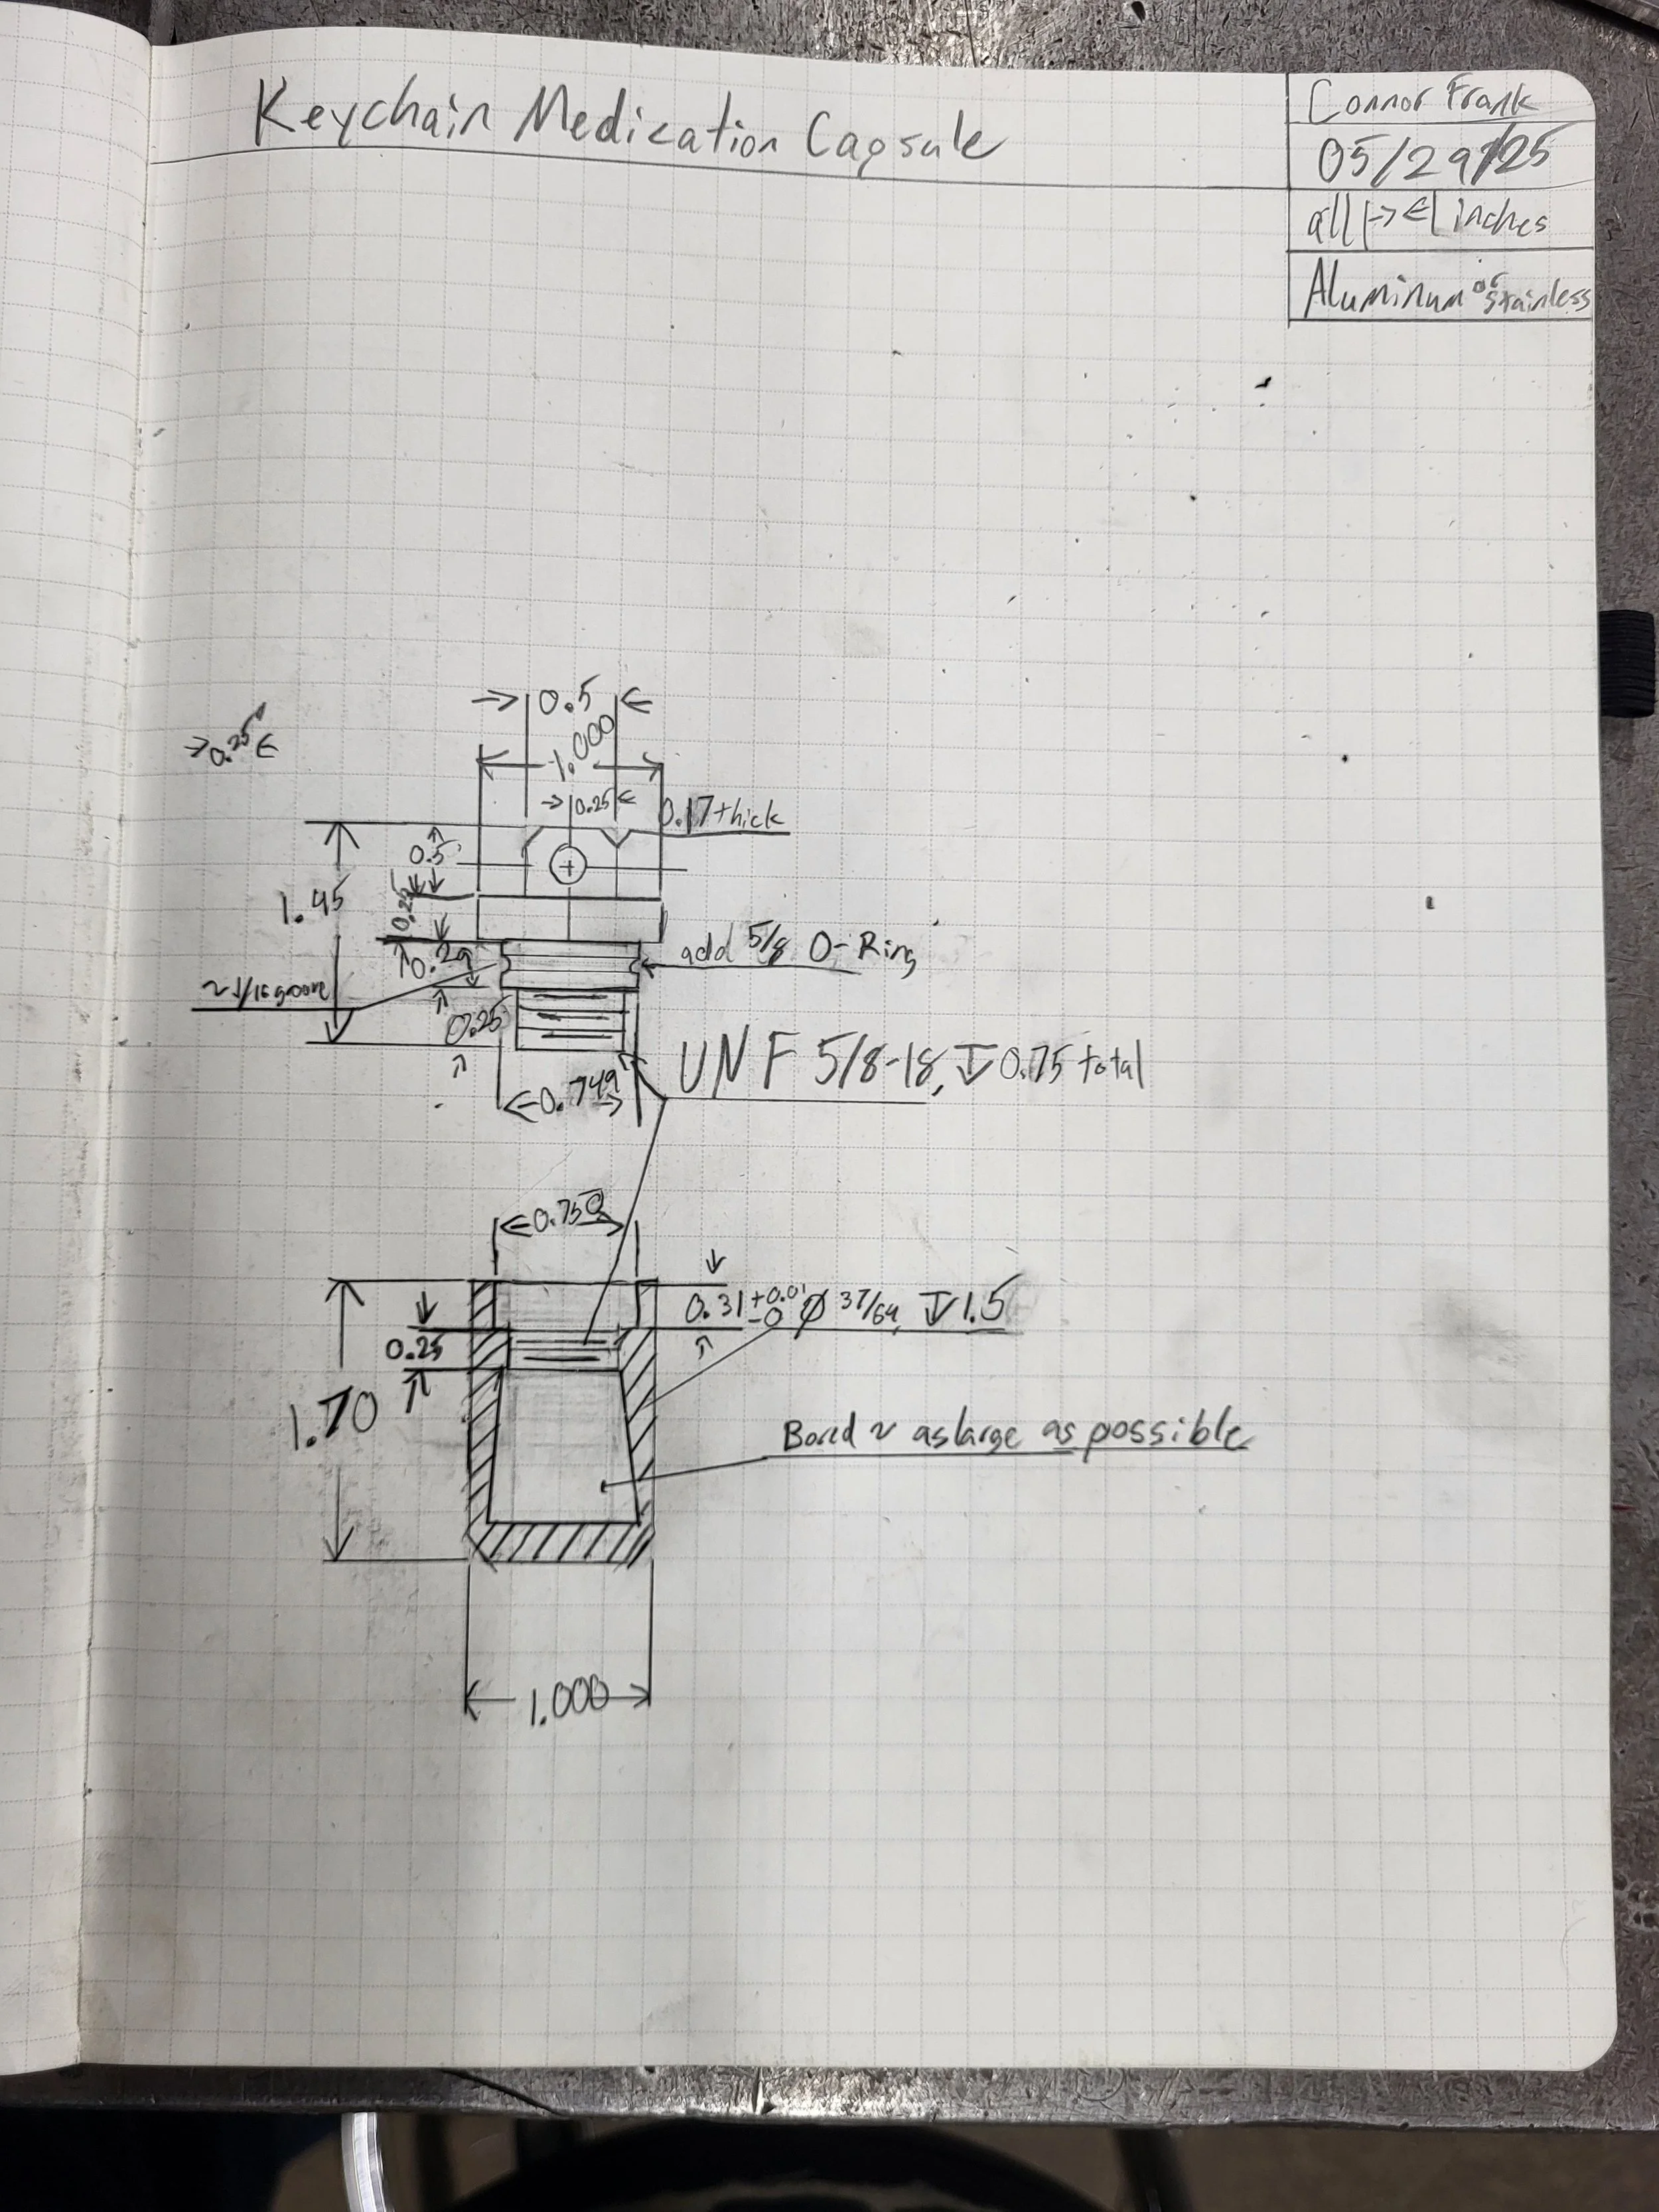 Keychain Medication Capsule
Connor Frank
05/29/25
all |→ ←| inches
Aluminum or stainless
→ 0.5 ←
→0.25←
1.000
→|0.25|←
0.17 thick
0.5
1.45
0.25
0.29
add 5/8 O-Ring
~1/16 groove
0.25
UNF 5/8-18, ↧ 0.75 total
←0.749→
←0.750→
0.31 +0.01 -0 Ø 37/64, ↧ 1.5
0.25
1.70
Bored ~ as large as possible
1.000